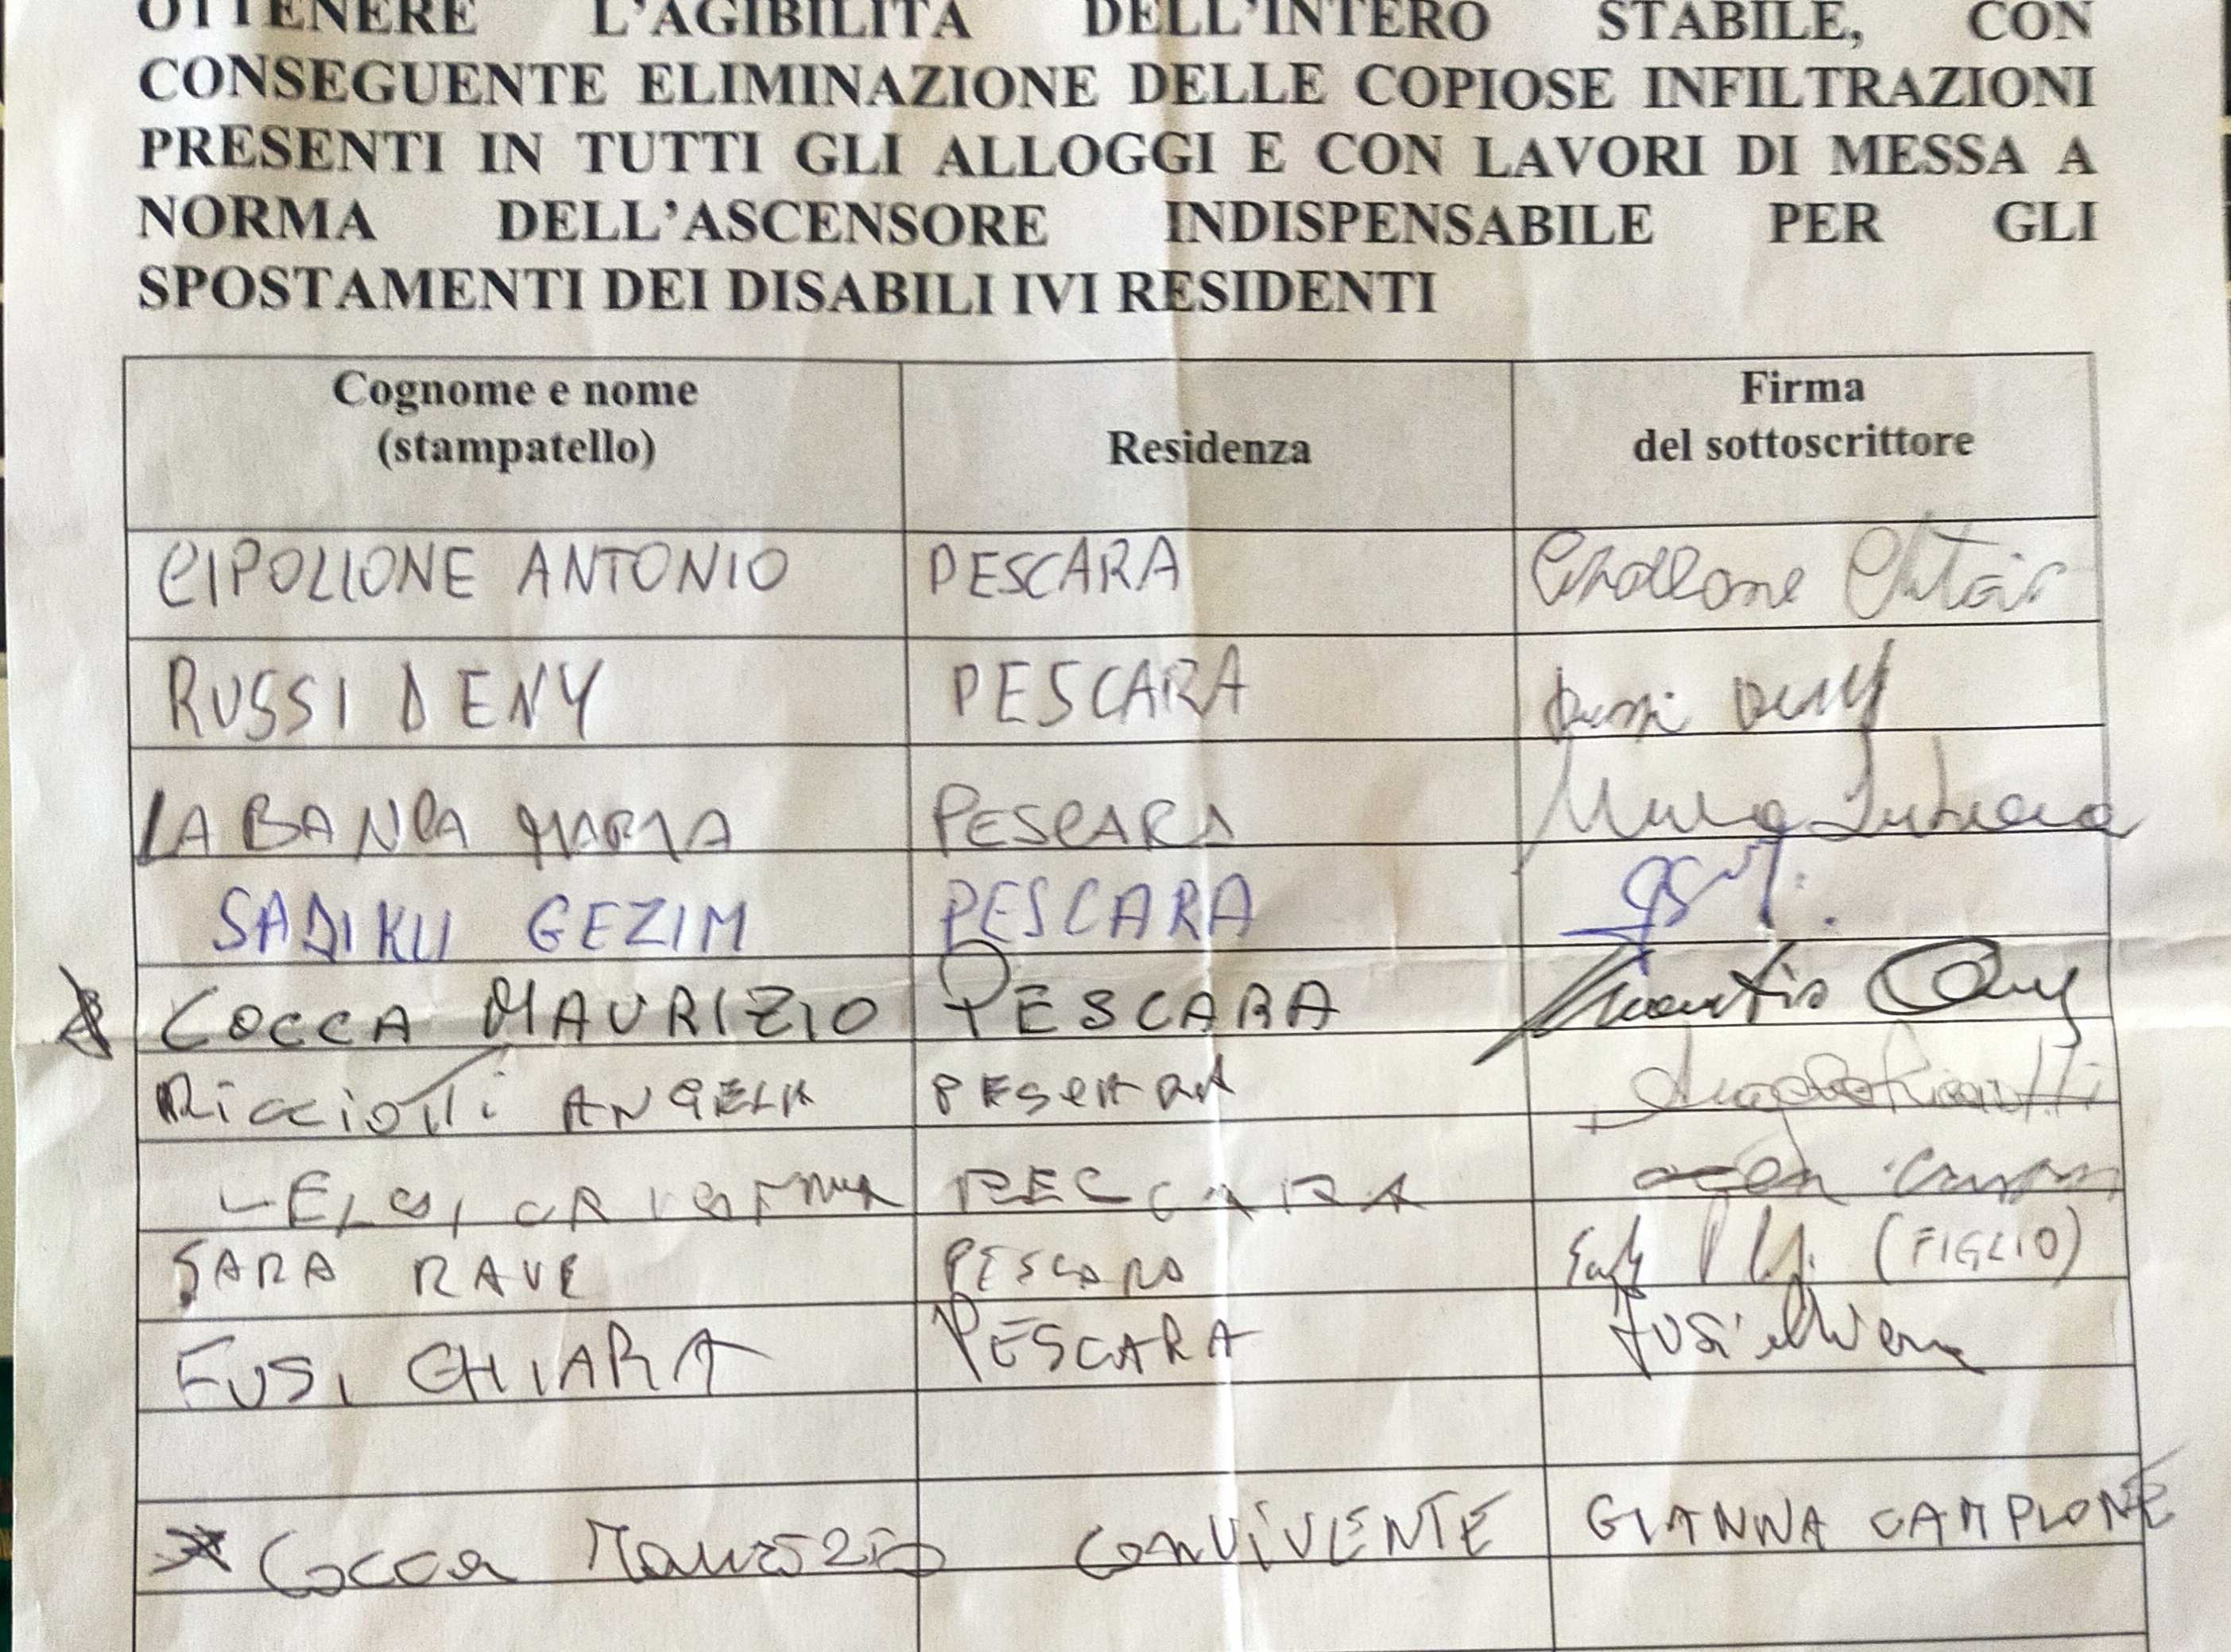 OTTENERE L'AGIBILITÀ DELL'INTERO STABILE, CON
CONSEGUENTE ELIMINAZIONE DELLE COPIOSE INFILTRAZIONI
PRESENTI IN TUTTI GLI ALLOGGI E CON LAVORI DI MESSA A
NORMA DELL'ASCENSORE INDISPENSABILE PER GLI
SPOSTAMENTI DEI DISABILI IVI RESIDENTI
Cognome e nome
(stampatello)
Residenza
Firma
del sottoscrittore
CIPOLLONE ANTONIO PESCARA Cipollone
RUSSI DENY PESCARA Russi Deny
LA BANCA MARIA PESCARA
SADIKU GEZIM PESCARA
COCCA MAURIZIO PESCARA
RICCIOTTI ANGELA PESCARA Ricciotti
PESCARA
SARA RAVE PESCARA (FIGLIO)
FUSI CHIARA PESCARA Fusi Chiara
Cocca Maurizio CONVIVENTE GIANNA CAMPLONE